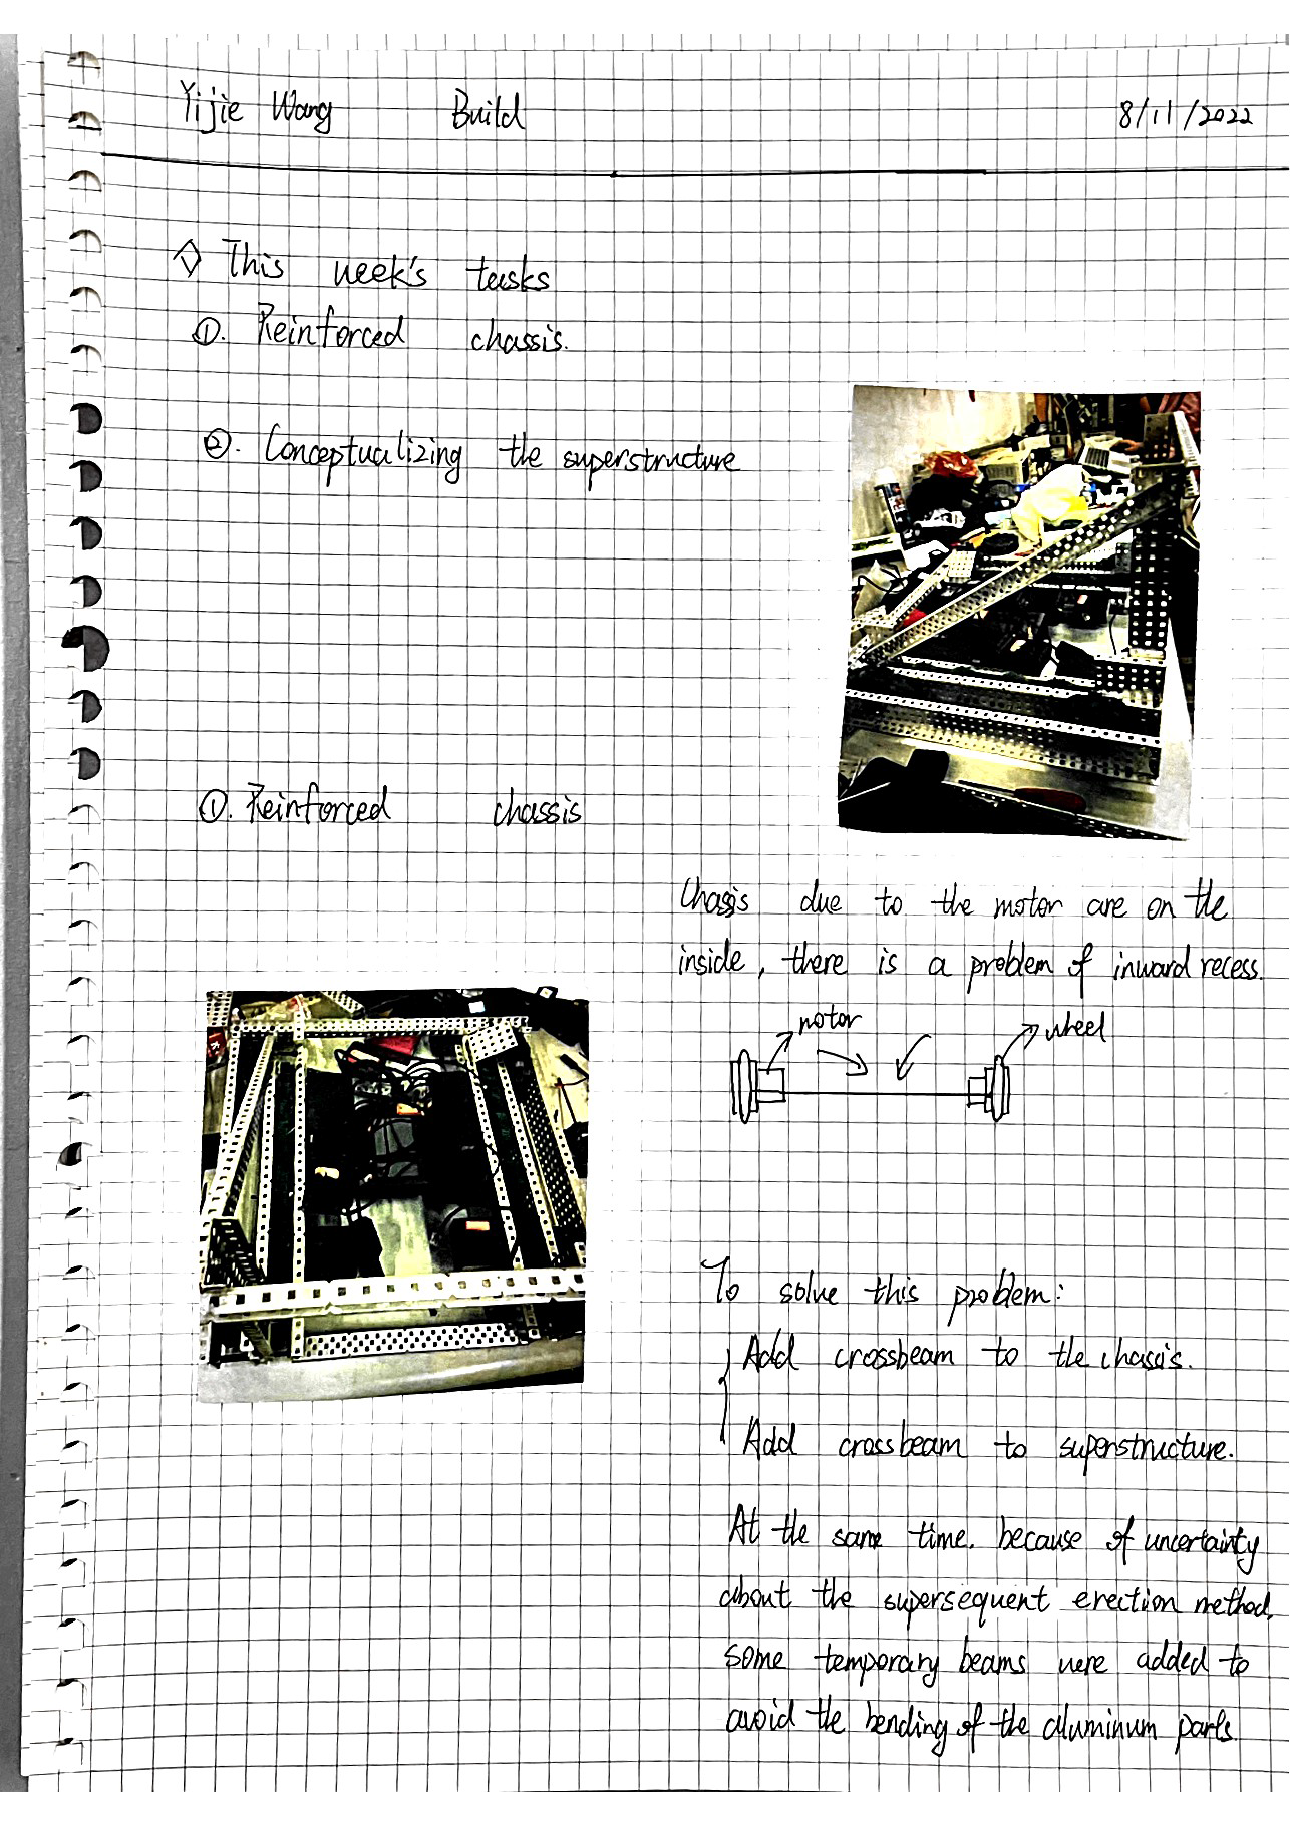 Yijie Wang Build 8/11/2022
◇ This week's tasks
①. Reinforced chassis.
②. Conceptualizing the superstructure
①. Reinforced chassis
Chassis due to the motor are on the
inside, there is a problem of inward recess.
motor
wheel
To solve this problem:
Add crossbeam to the chassis.
Add crossbeam to superstructure.
At the same time. because of uncertainty
about the supersequent erection method,
some temporary beams were added to
avoid the bending of the aluminum parts.